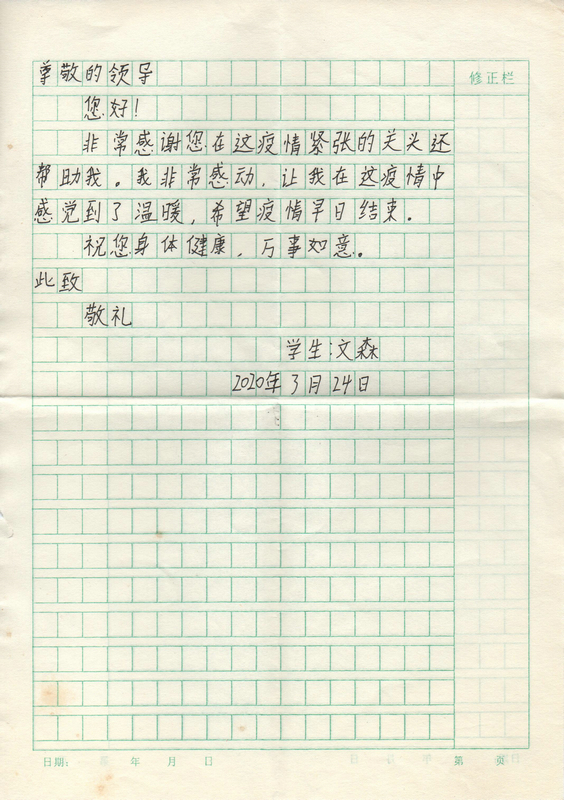 尊敬的领导
修正栏
您好!
非常感谢您在这疫情紧张的关头还
帮助我。我非常感动，让我在这疫情中
感觉到了温暖，希望疫情早日结束。
祝您身体健康，万事如意。
此致
敬礼
学生:文森
2020年3月24日
日期: 年 月 日 第 页